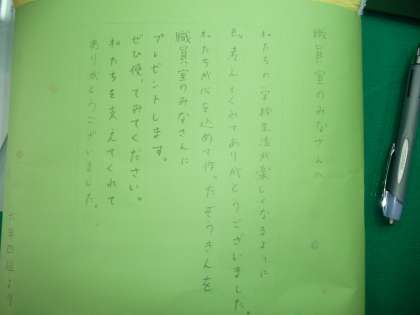 職員室のみなさんへ
私たちの学校生活が楽しくなるように
色々考えてくれてありがとうございました。
私たちが心を込めて作ったぞうきんを
職員室のみなさんに
プレゼントします。
ぜひ使ってみてください。
私たちを支えてくれて
ありがとうございました。
六年四組より